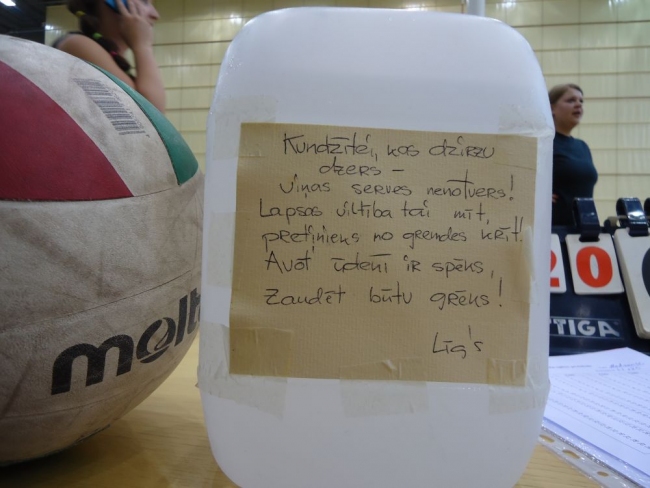 Kundzītei, kas dzirzu
dzers -
viņas serves nenotvers!
Lapsas viltība tai mīt,
pretinieks no grendes krīt!
Avotūdenī ir spēks,
zaudēt būtu grēks!
Līg's
molt
20
TTIGA